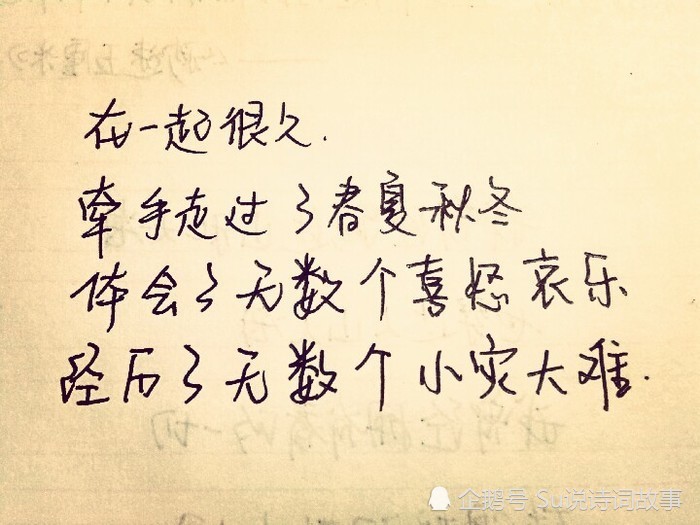 在一起很久.
牵手走过了春夏秋冬
体会了无数个喜怒哀乐
经历了无数个小灾大难.
企鹅号 Su说诗词故事